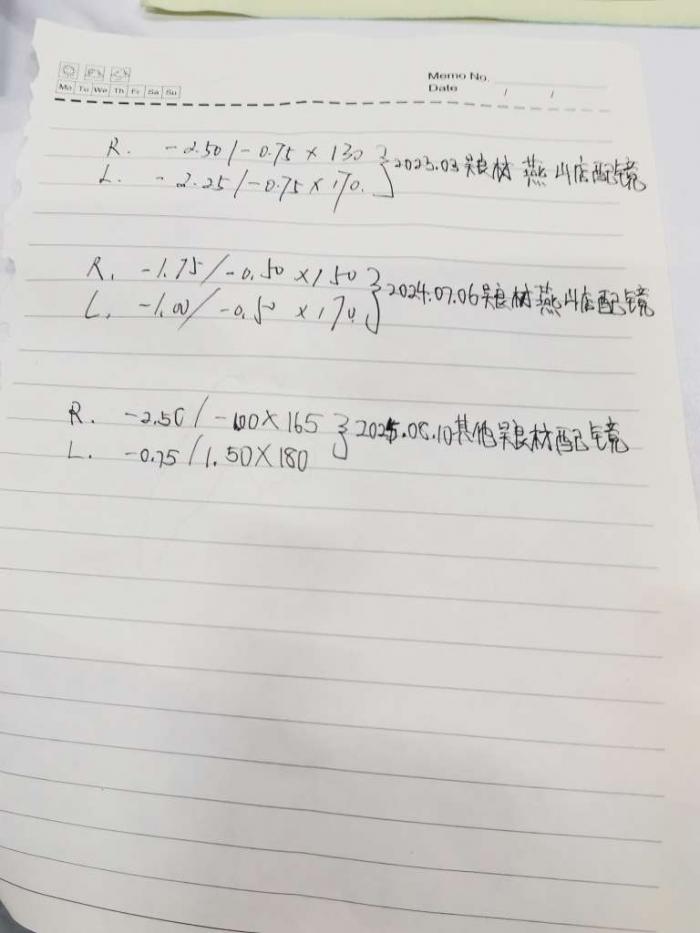 Memo No.
Mo Tu We Th Fr Sa Su
Date / /
R. -2.50/-0.75×130
L. -2.25/-0.75×170. }2023.03吴良材 燕山店配镜
R. -1.75/-0.50×150
L. -1.00/-0.50×170. }2024.07.06吴良材燕山店配镜
R. -2.50/-100×165
L. -0.75/1.50×180 }2025.08.10其他吴良材配镜